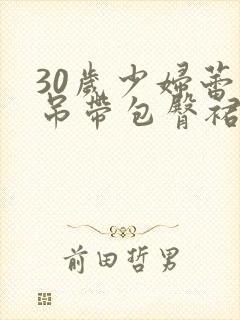 30歲少婦蕾
吊帶包臀裙
前田哲男